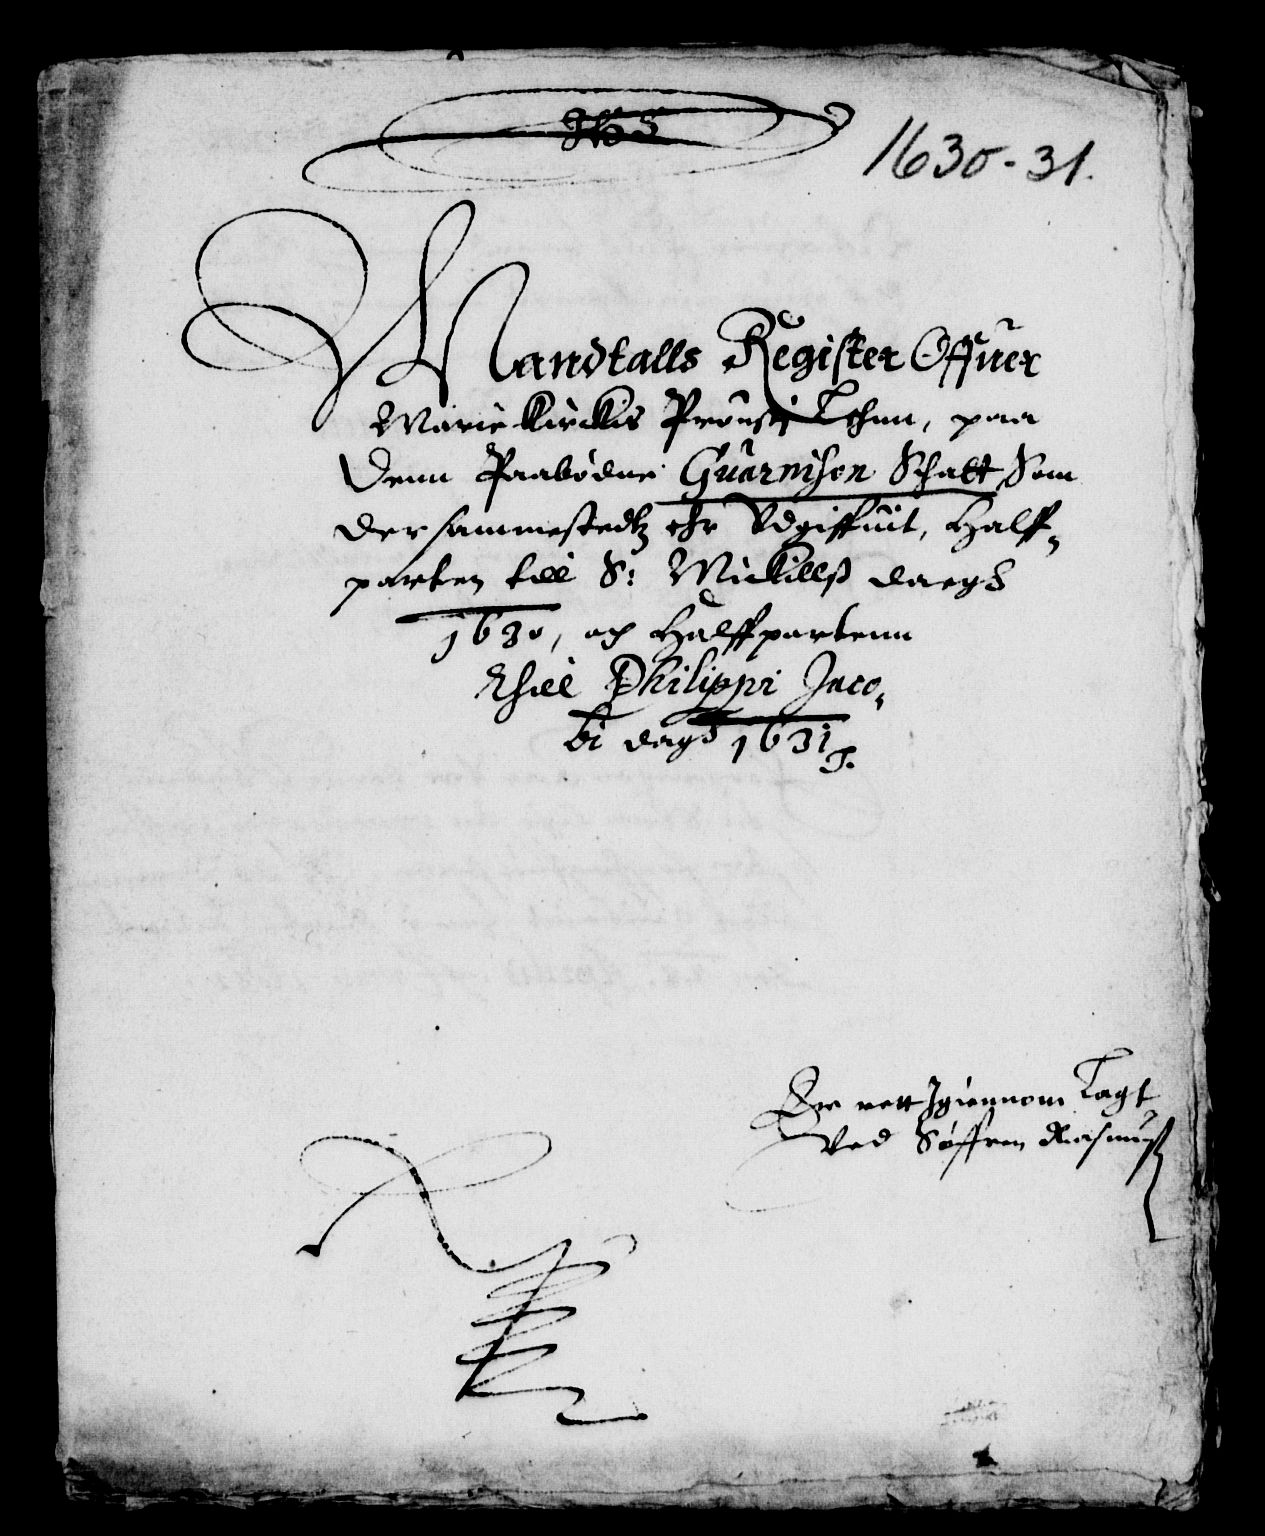 1630-31.
Mandtalls Register Offuer
Mariekirckis Proustj Lehnn, paa
Denn Paabødne Guarnison Schatt Som
der sammestedtz ehr Udgiffuit, Halff-
parten till S: Mickillß daegs
1630, och Halffpartenn
thill Philippi Jaco-
bi dags 1631
Er rett Igiennom Lagt
Ved Søffren Rasmuß